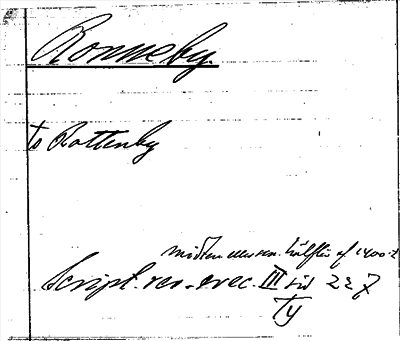 Ronneby.
to Rottenby
midten av sen. hälften af 1400-t
Script. rer. svec. III sid 227
Ty